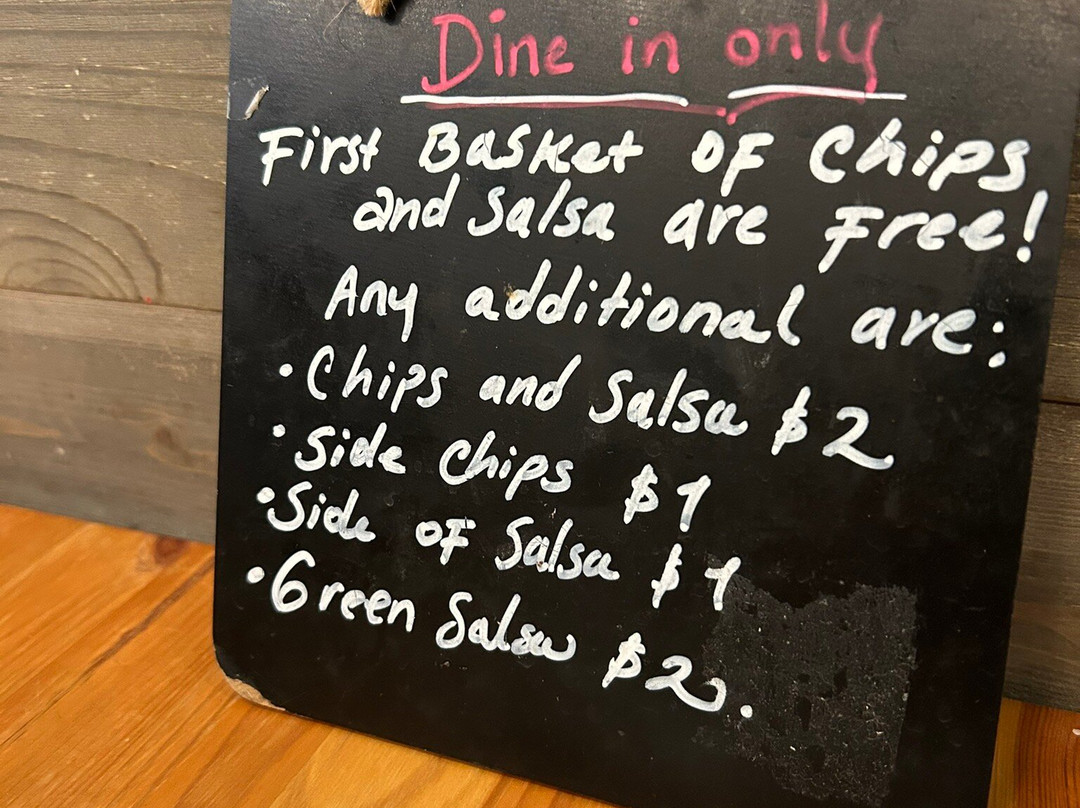 Dine in only
First Basket OF Chips
and Salsa are Free!
Any additional are:
• Chips and Salsa $2
• Side Chips $1
• Side of Salsa $1
• Green Salsa $2.